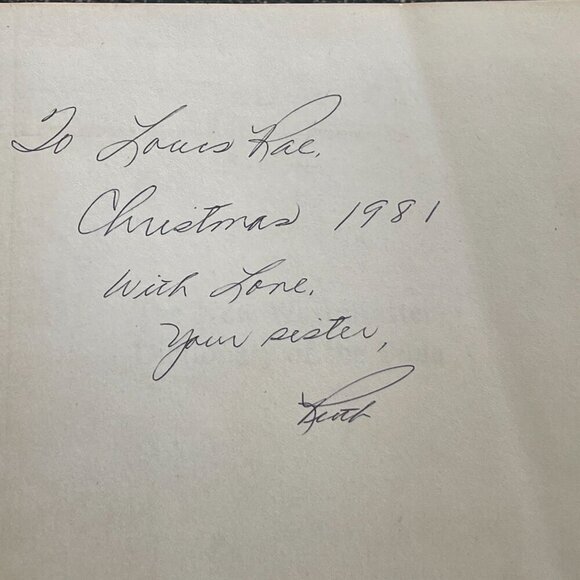 To Louis Rae.
Christmas 1981
With Love.
Your sister,
Ruth